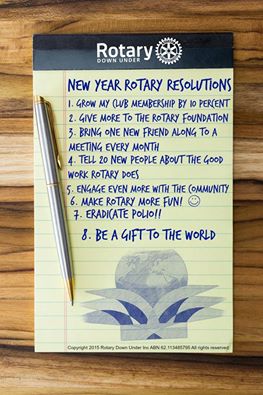 Rotary
DOWN UNDER
NEW YEAR ROTARY RESOLUTIONS
1. GROW MY CLUB MEMBERSHIP BY 10 PERCENT
2. GIVE MORE TO THE ROTARY FOUNDATION
3. BRING ONE NEW FRIEND ALONG TO A
MEETING EVERY MONTH
4. TELL 20 NEW PEOPLE ABOUT THE GOOD
WORK ROTARY DOES
5. ENGAGE EVEN MORE WITH THE COMMUNITY
6. MAKE ROTARY MORE FUN! ☺
7. ERADICATE POLIO!!
8. BE A GIFT TO THE WORLD
Copyright 2015 Rotary Down Under Inc ABN 62 113485795 All rights reserved